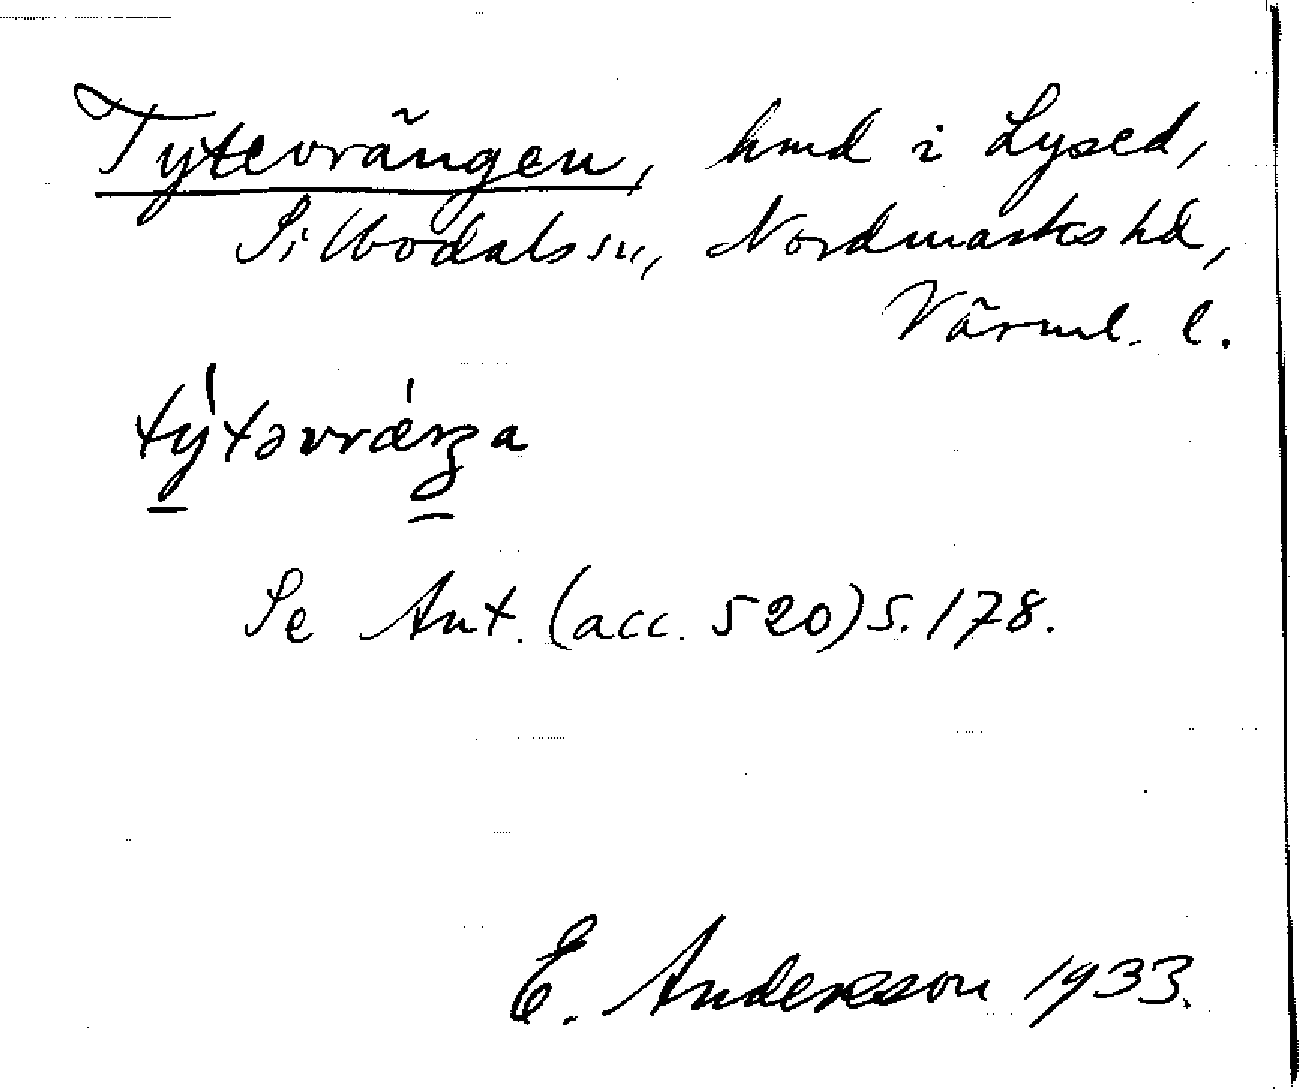 Tytevrängen, hmd i Lysed,
Silbodals sn, Nordmarks hd,
Värml. l.
týtəvrǽŋa
Se Ant. (acc. 520) s. 178.
E. Andersson 1933.